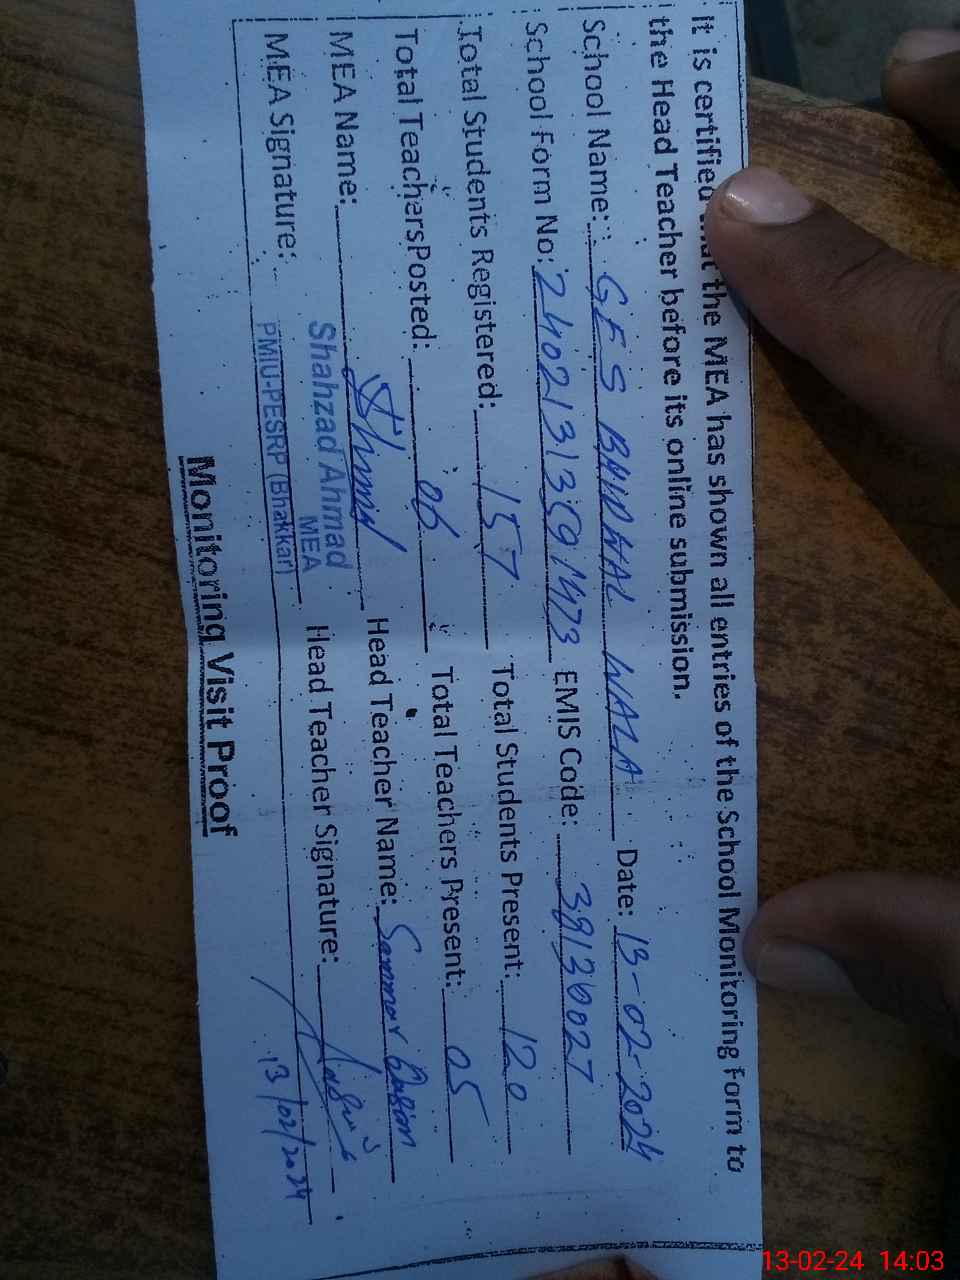 Monitoring Visit Proof
It is certified that the MEA has shown all entries of the School Monitoring Form to
the Head Teacher before its online submission.
School Name: GES BHIDWAL WALA Date: 13-02-2024
School Form No: EMIS Code:
Total Students Registered: 157 Total Students Present: 120
Total Teachers Posted: 06 Total Teachers Present: 05
MEA Name: Head Teacher Name: Sammar
Shahzad Ahmad
MEA
MEA Signature: Head Teacher Signature:
PMIU-PESRP (Bhakkar)
13/02/2024
13-02-24 14:03